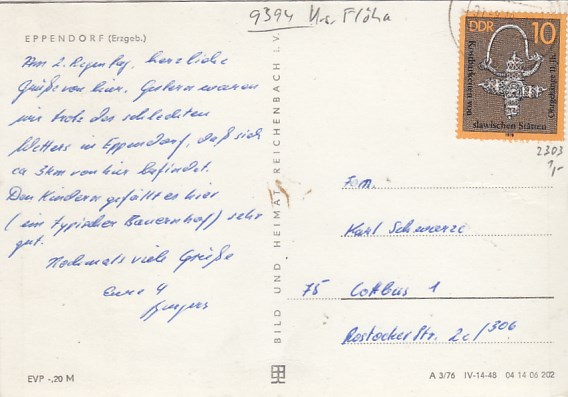 EPPENDORF (Erzgeb.)
9394 Kr. Flöha
Am 2. Regentag, herzliche
Grüße von hier. Gestern waren
wir trotz des schlechten
Wetters in Eppendorf, daß sich
ca 3km von hier befindet.
Den Kindern gefällt es hier
(ein typischer Bauernhof) sehr
gut.
Nochmals viele Grüße
Eure 4
BILD UND HEIMAT REICHENBACH i. V.
DDR 10
Kostbarkeiten von
slawischen Stätten
Ohrgehänge 11. Jh.
2303
1,-
Fam.
Karl Schwarze
75 Cottbus 1
Rostocker Str. 2c/306
EVP -,20 M
A 3/76 IV-14-48 04 14 06 202